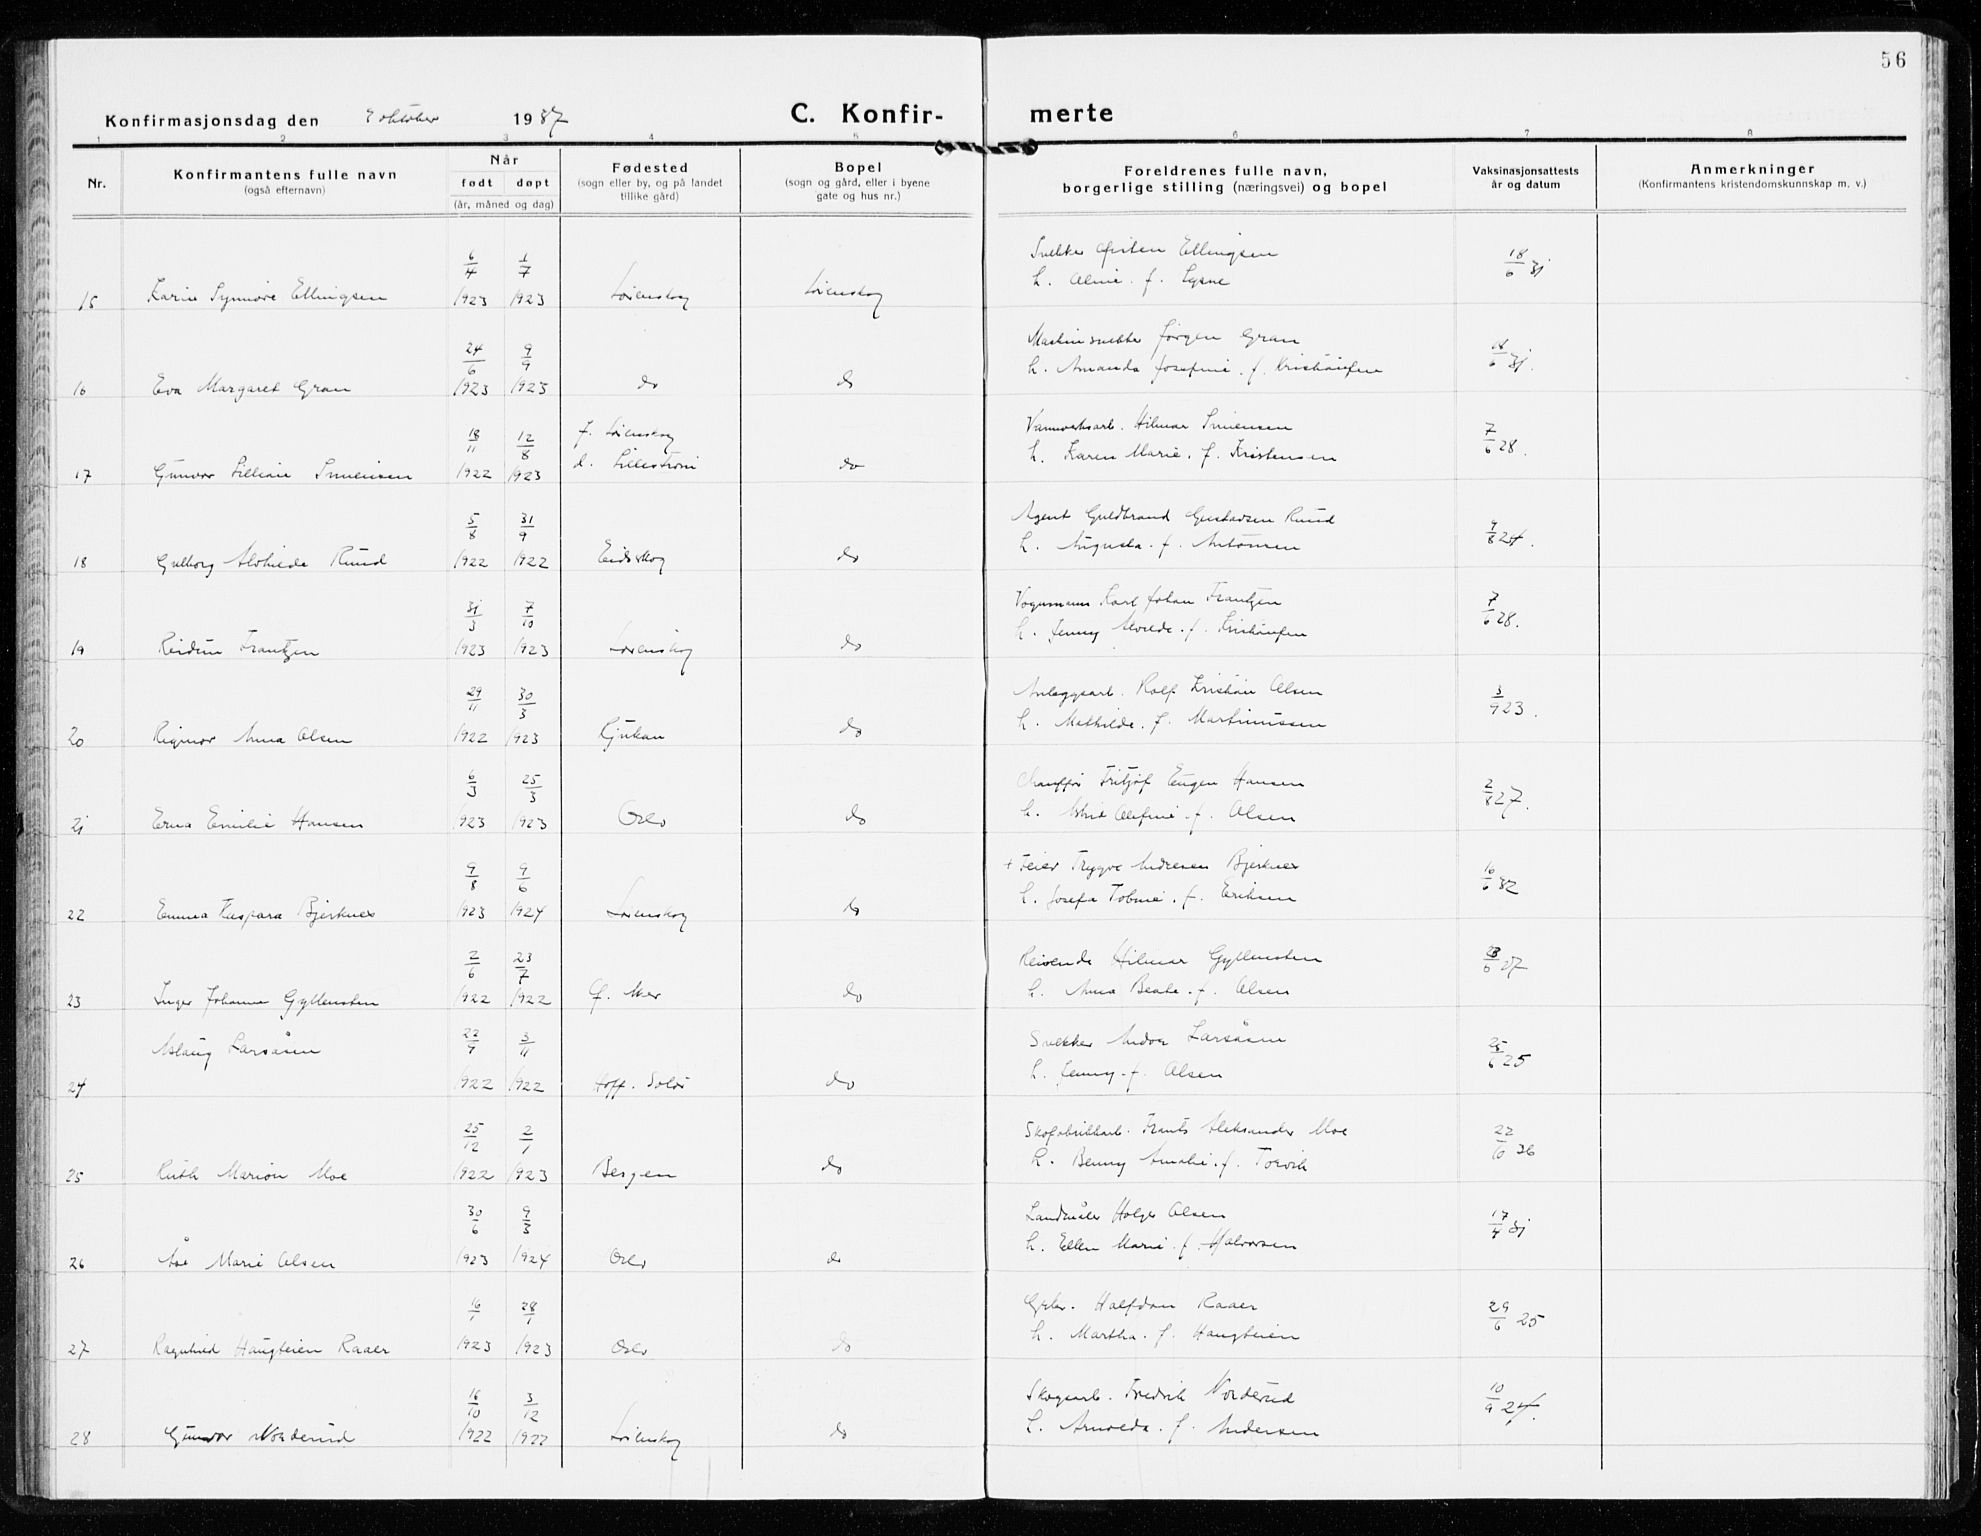 56
Konfirmasjonsdag den 3 oktober 1937
C. Konfir- merte
1 2 3 4 5 6 7 8
Nr.
Konfirmantens fulle navn
(også efternavn)
Når
født døpt
(år, måned og dag)
Fødested
(sogn eller by, og på landet
tillike gård)
Bopel
(sogn og gård, eller i byene
gate og hus nr.)
Foreldrenes fulle navn,
borgerlige stilling (næringsvei) og bopel
Vaksinasjonsattests
år og datum
Anmerkninger
(Konfirmantens kristendomskunnskap m. v.)
6/4 1/7 Snekker Øisten Ellingsen 18/6 31
15 Karin Synnøve Ellingsen 1923 1923 Lørenskog Lørenskog h. Alvine f. Lysne
24/6 9/9 Maskinsnekker Jørgen Gran 18/6 31.
16 Eva Margaret Gran 1923 1923 do do h. Amanda Josefine f. Kristiansen
18/11 12/8 f. Lørenskog Vannverksarb. Hilmar Simensen 7/6 28.
17 Gunvor Lilliam Simensen 1922 1923 d. Lillestrøm do h. Karen Marie. f. Kristensen
5/8 31/9 Agent Guldbrand Gustavsen Ruud 9/8 24.
18 Gulborg Alvhilde Ruud 1922 1922 Eidskog do h. Augusta. f. Antonsen
31/3 7/10 Vognmann Karl Johan Frantzen 7/6 28.
19 Reidun Frantzen 1923 1923 Lørenskog do h. Jenny Alvilde. f. Kristiansen
29/11 30/3 Anleggsarb. Rolf Kristian Olsen 3/9 23.
20 Rigmor Anna Olsen 1922 1923 Rjukan do h. Mathilde. f. Martinussen
6/3 25/3 Chauffør Fritjof Eugen Hansen 2/8 27.
21 Erna Emilie Hansen 1923 1923 Oslo do h. Astrid Olefine. f. Olsen
9/8 9/6 + Feier Trygve Andresen Bjerknes 16/6 32
22 Emma Kaspara Bjerknes 1923 1924 Lørenskog do h. Josefa Tobine. f. Eriksen
2/6 23/7 Reisende Hilmar Gyllensten 23/6 27
23 Inger Johanne Gyllensten 1922 1922 Ø. Aker do h. Anna Beate. f. Olsen
Aslaug Larsåsen 22/9 3/11 Snekker Andor Larsåsen 25/6 25
24 1922 1922 Hoff. Solør do h. Jenny. f. Olsen
25/12 2/1 Skofabrikkarb. Frants Aleksander Moe 22/6 36
25 Ruth Marion Moe 1922 1923 Bergen do h. Benny Amalie. f. Torvik
30/6 9/3 Landmåler Holger Olsen 17/4 31
26 Åse Marie Olsen 1923 1924 Oslo do h. Ellen Marie. f. Halvorsen
16/1 28/1 Grbr. Halfdan Raaer 29/6 25
27 Ragnhild Haugteien Raaer 1923 1923 Oslo do h. Martha. f. Haugteien
16/10 3/12 Skogsarb. Fredrik Norderud 10/9 24.
28 Gunvor Norderud 1922 1922 Lørenskog do h. Arnolda. f. Andersen